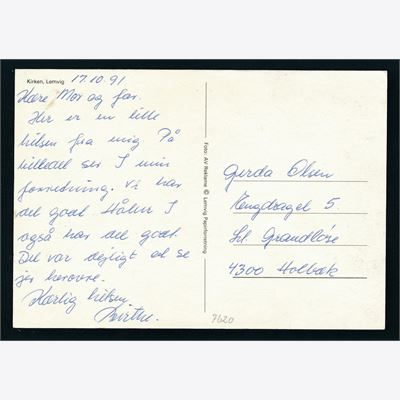 Kirken, Lemvig
17.10.91
Kære Mor og far.
Her er en lille
hilsen fra mig. På
billedet ser I min
forretning. Vi har
det godt. Håber I
også har det godt.
Det var dejligt at se
jer herovre.
Kærlig hilsen
Birthe.
Foto: AV Reklame © Lemvig Papirforretning
Gerda Olsen
Engdraget 5
Sdr. Grandløse
4300 Holbæk
7620